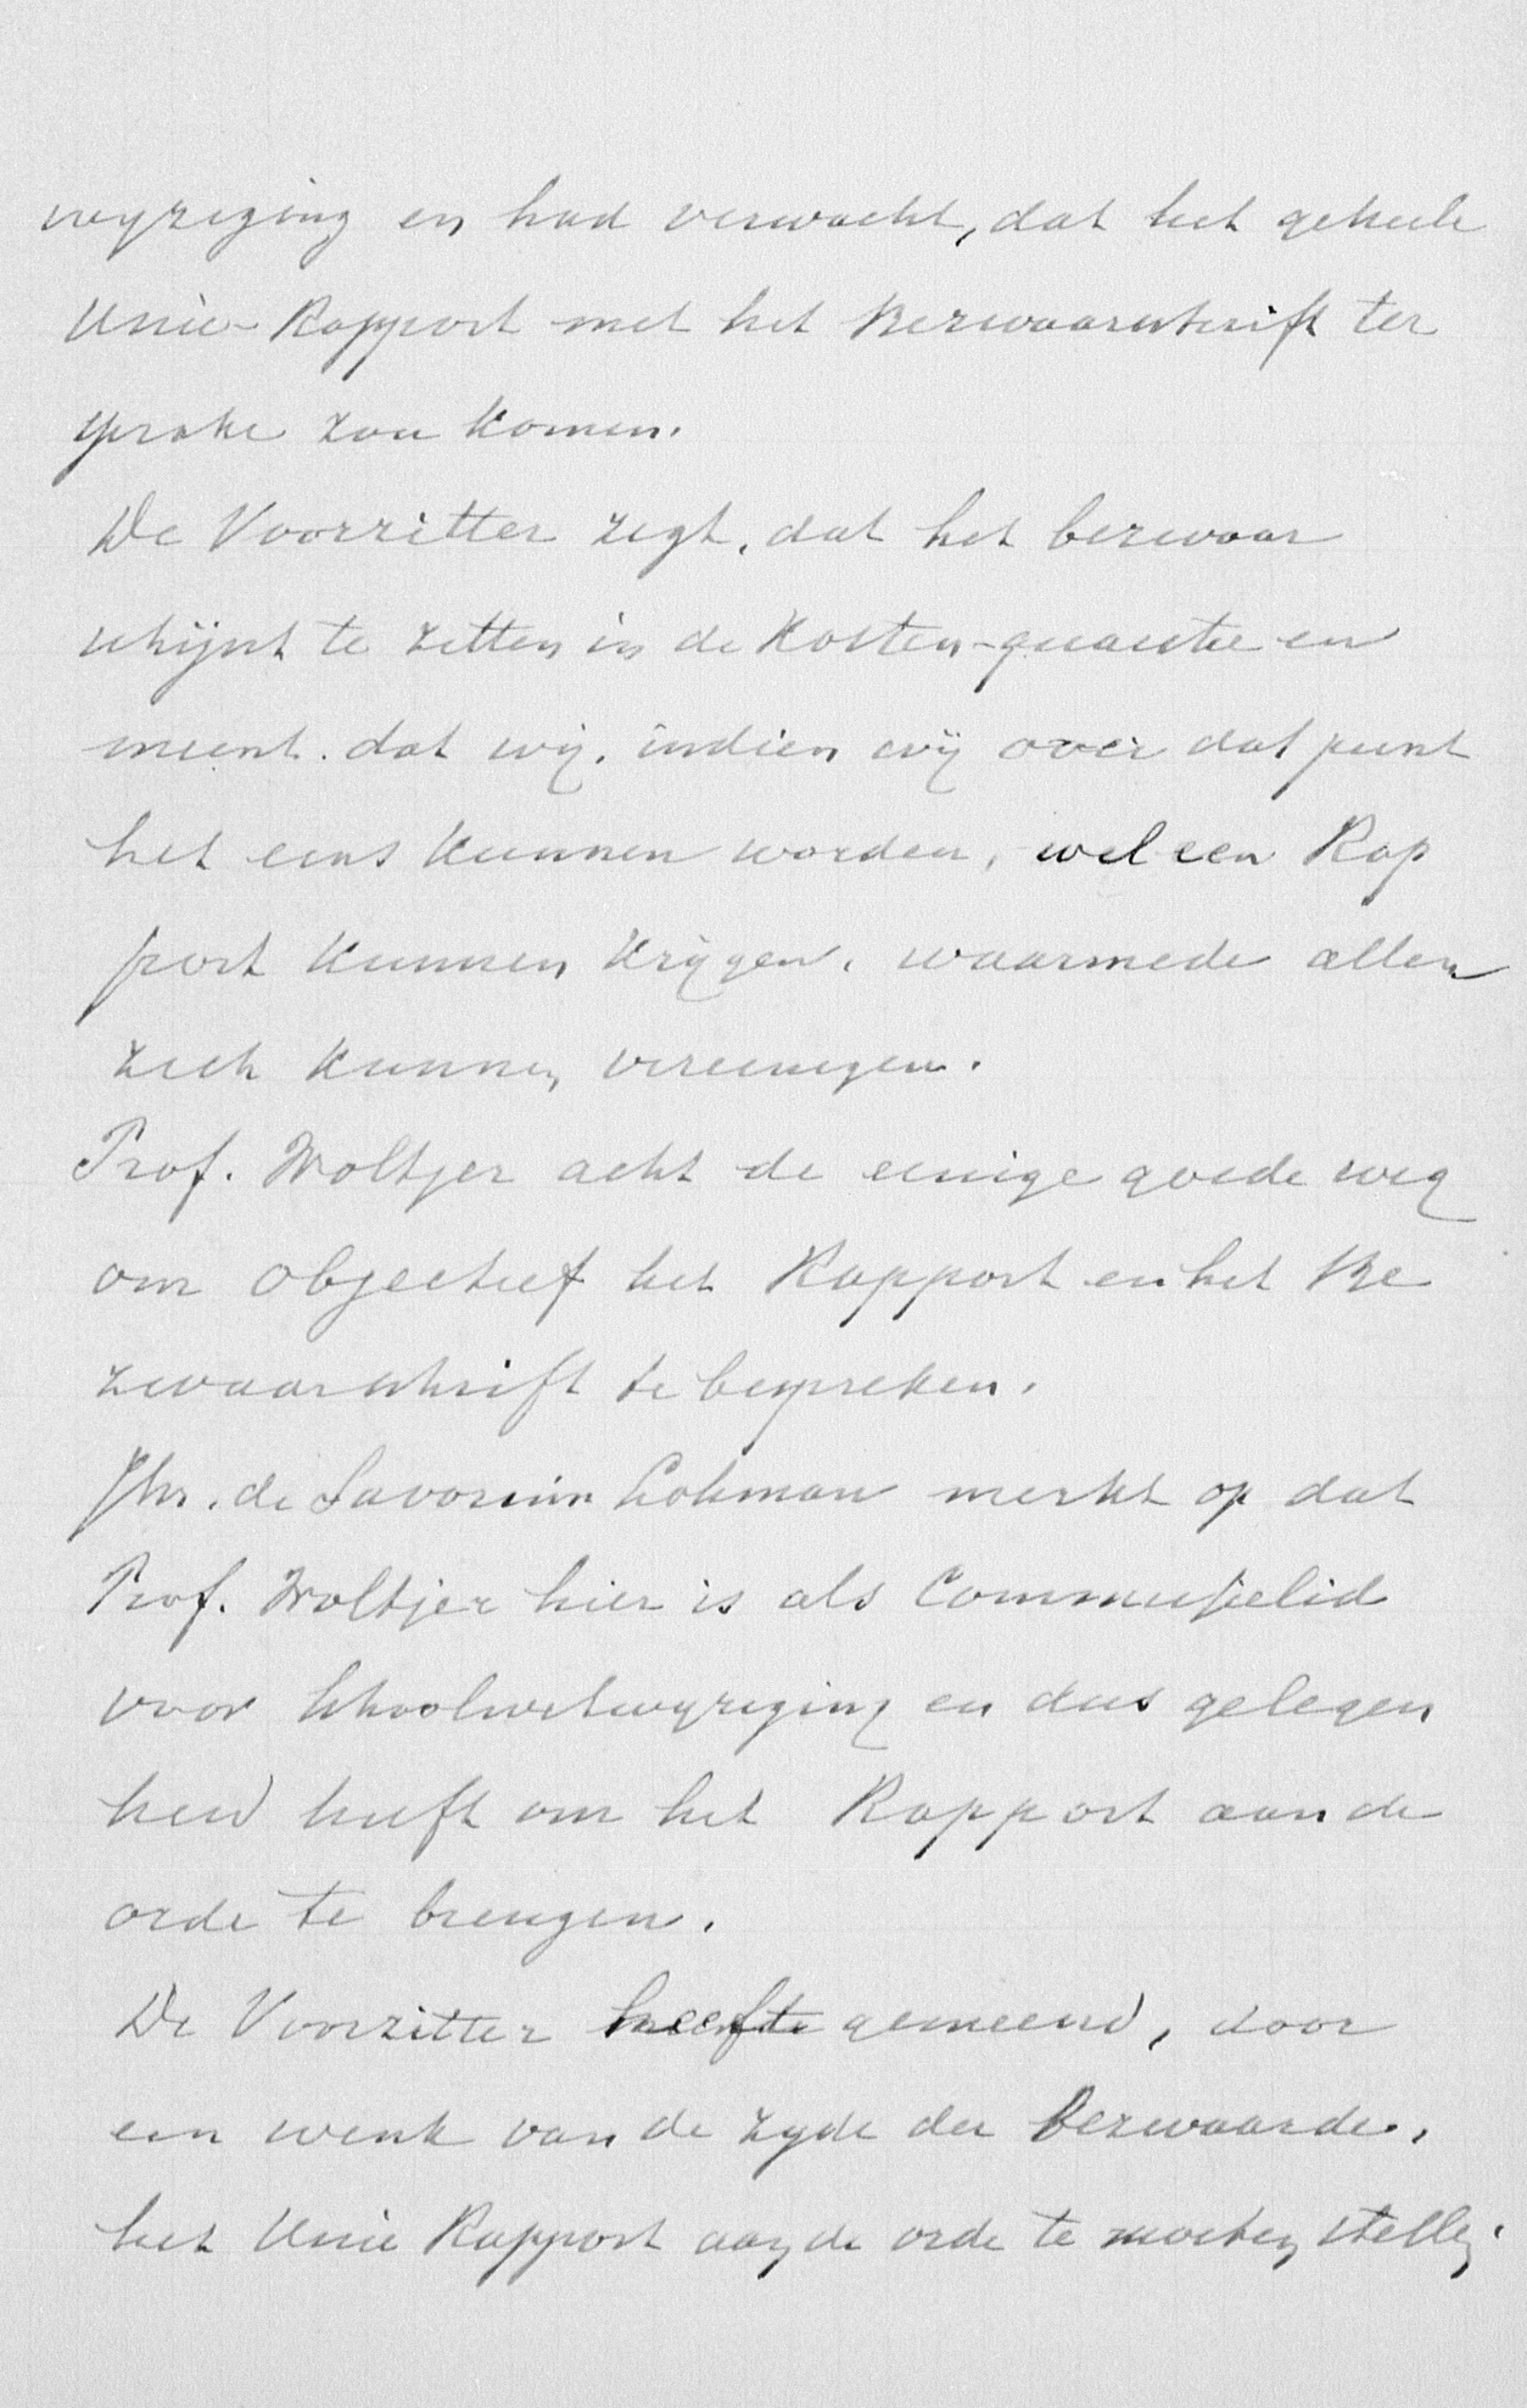 wyziging en had verwacht, dat het geheele
Unie-Rapport met het Bezwaarschrift ter
sprake zou komen.
De Voorzitter zegt, dat het bezwaar
schijnt te zitten in de Kosten-quaestie en
meent. dat wij, indien wij over dat punt
het eens kunnen worden, wel een Rap
port kunnen krijgen, waarmede allen
zich kunnen vereenigen.
Prof. Woltjer acht de eenige goede weg
om objectief het Rapport en het Be
zwaarschrift te bespreken.
Jhr. de Savornin Lohman merkt op dat
Prof. Woltjer hier is als Commissielid
voor Schoolwetwyziging en dus gelegen
heid heeft om het Rapport aan de
orde te brengen.
De Voorzitter heeft gemeend, door
een wenk van de zyde der Bezwaarden,
het Unie Rapport aan de orde te moeten stellen.